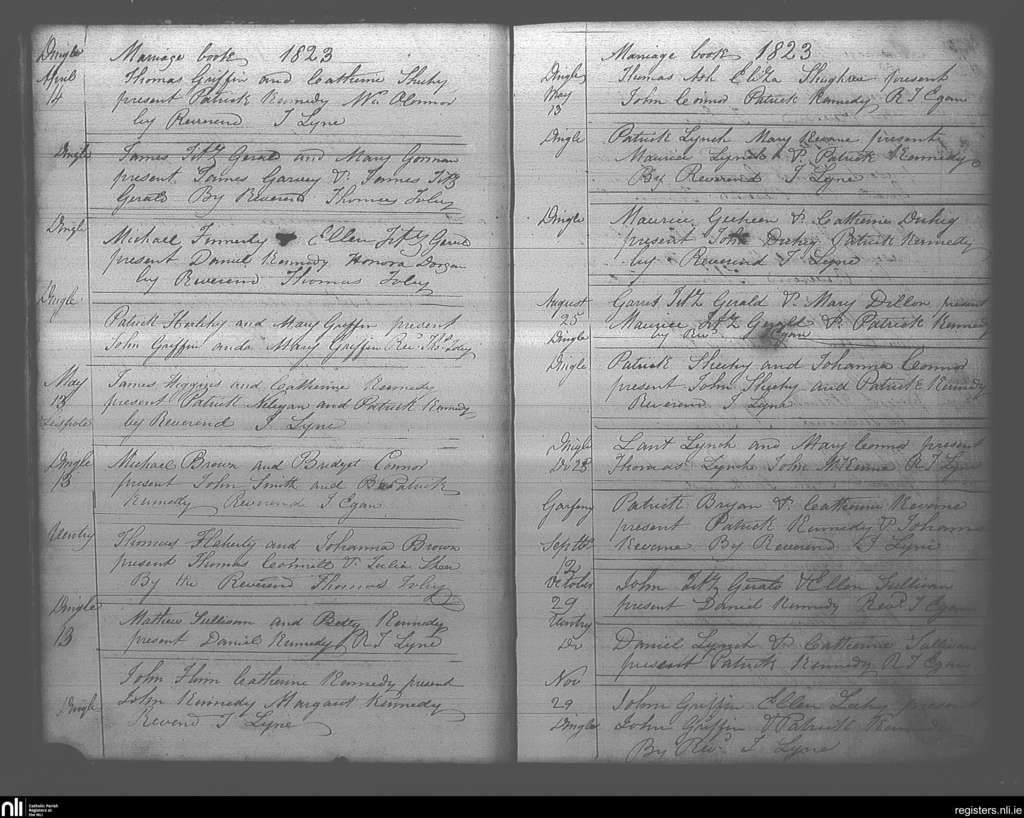 Dingle
April
14
Marriage book 1823
Thomas Griffin and Catherine Sheehy
present Patrick Kennedy Wm OConnor
by Reverend T Lyne
Dingle
James Fitz Gerald and Mary Gorman
present James Garvey & James Fitz
Gerald By Reverend Thomas Foley
Dingle
Michael Kennedy Ellen Fitz Gerald
present Daniel Kennedy Honora
by Reverend Thomas Foley
Dingle
Patrick and Mary Griffin present
John Griffin and Mary Griffin Revd Ths Foley
May
13
Lispole
James Higgins and Catherine Kennedy
present Patrick Neligan and Patrick Kennedy
by Reverend T Lyne
Dingle
13
Michael Brown and Bridget Connor
present John Smith and Patrick
Kennedy Reverend T Egan
Ventry
Thomas Flaherty and Johanna Brown
present Thomas & Julia Shea
By the Reverend Thomas Foley
Dingle
13
Mathew Sullivan and Betty Kennedy
present Daniel Kennedy R T Lyne
John Flinn Catherine Kennedy present
Dingle
John Kennedy Margaret Kennedy
Revend T Lyne
Marriage book 1823
Dingle
May
13
Thomas Ash Eliza present
John Connor Patrick Kennedy R T Egan
Dingle
Patrick Lynch Mary Kevane present
Maurice Lynch & Patrick Kennedy
By Reverend T Lyne
Dingle
Maurice & Catherine
present John Patrick Kennedy
by Reverend T Lyne
August
25
Dingle
Garret Fitz Gerald & Mary Dillon present
Maurice Fitz Gerald & Patrick Kennedy
by Revd T Egan
Dingle
Patrick Sheehy and Johanna Connor
present John Sheehy and Patrick Kennedy
Reverend T Lyne
Dingle
Do 28
Laut Lynch and Mary Connor present
Thomas Lynch John McKenna R T Lyne
Garfiny
Septbr
12
Patrick Bryan & Catherine Kevane
present Patrick Kennedy & Johanna
Kevane By Reverend T Lyne
October
29
Ventry
John Fitz Gerald & Ellen Sullivan
present Daniel Kennedy Revd T Egan
Do
Daniel Lynch & Catherine Sullivan
present Patrick Kennedy R T Egan
Nov
29
Dingle
John Griffin Ellen present
John Griffin & Patrick Kennedy
By Revd T Lyne
nli
Catholic Parish
Registers at
the NLI
registers.nli.ie